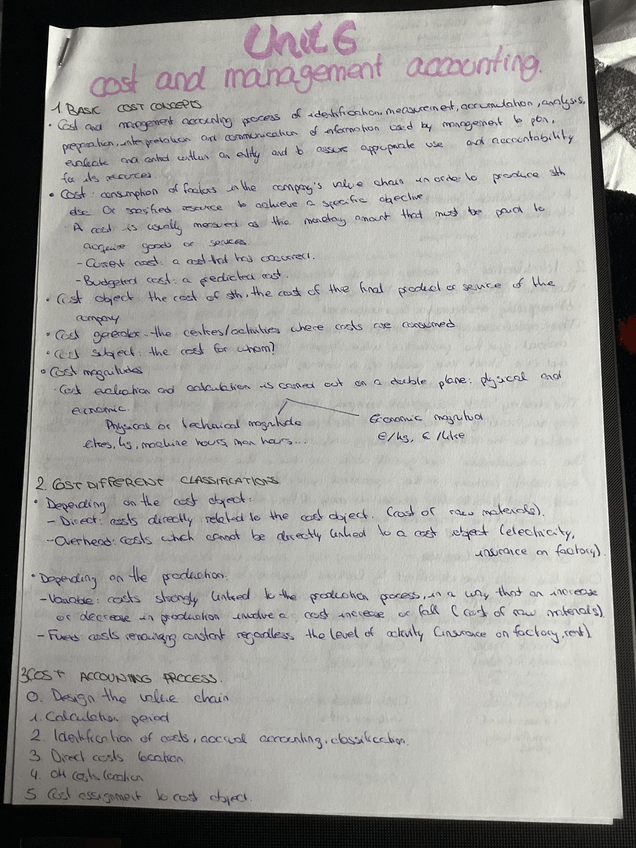 Unit 6
cost and management accounting.
1 BASIC COST CONCEPTS
• Cost and management accounting process of identification, measurement, accumulation, analysis,
preparation, interpretation and communication of information used by management to plan,
evaluate and control within an entity and to assure appropriate use and accountability
for its resources
• Cost: consumption of factors in the company's value chain in order to produce sth
else. Or sacrified resource to achieve a specific objective
A cost is usually measured as the monetary amount that must be paid to
acquire goods or services
- Current cost: a cost that has occurred.
- Budgeted cost: a predicted cost.
• Cost object: the cost of sth, the cost of the final product or service of the
company
• Cost generator: the centres/activities where costs are consumed
• Cost subject: the cost for whom?
• Cost magnitudes
Cost evaluation and calculation is carried out on a double plane: physical and
economic.
Physical or technical magnitude
litres, kg, machine hours, man hours...
Economic magnitud
€/kg, €/litre
2. COST DIFFERENT CLASSIFICATIONS
• Depending on the cost object:
- Direct: costs directly related to the cost object. (cost of raw materials).
- Overhead: costs which cannot be directly linked to a cost object (electricity,
insurance on factory).
• Depending on the production.
- Variable: costs strongly linked to the production process, in a way that an increase
or decrease in production involve a cost increase or fall (cost of raw materials).
- Fixed costs remaining constant regardless the level of activity (insurance on factory, rent).
3 COST ACCOUNTING PROCESS.
0. Design the value chain
1. Calculation period
2 Identification of costs, accrual accounting, classification.
3 Direct costs location
4 OH costs location
5 Cost assignment to cost object.